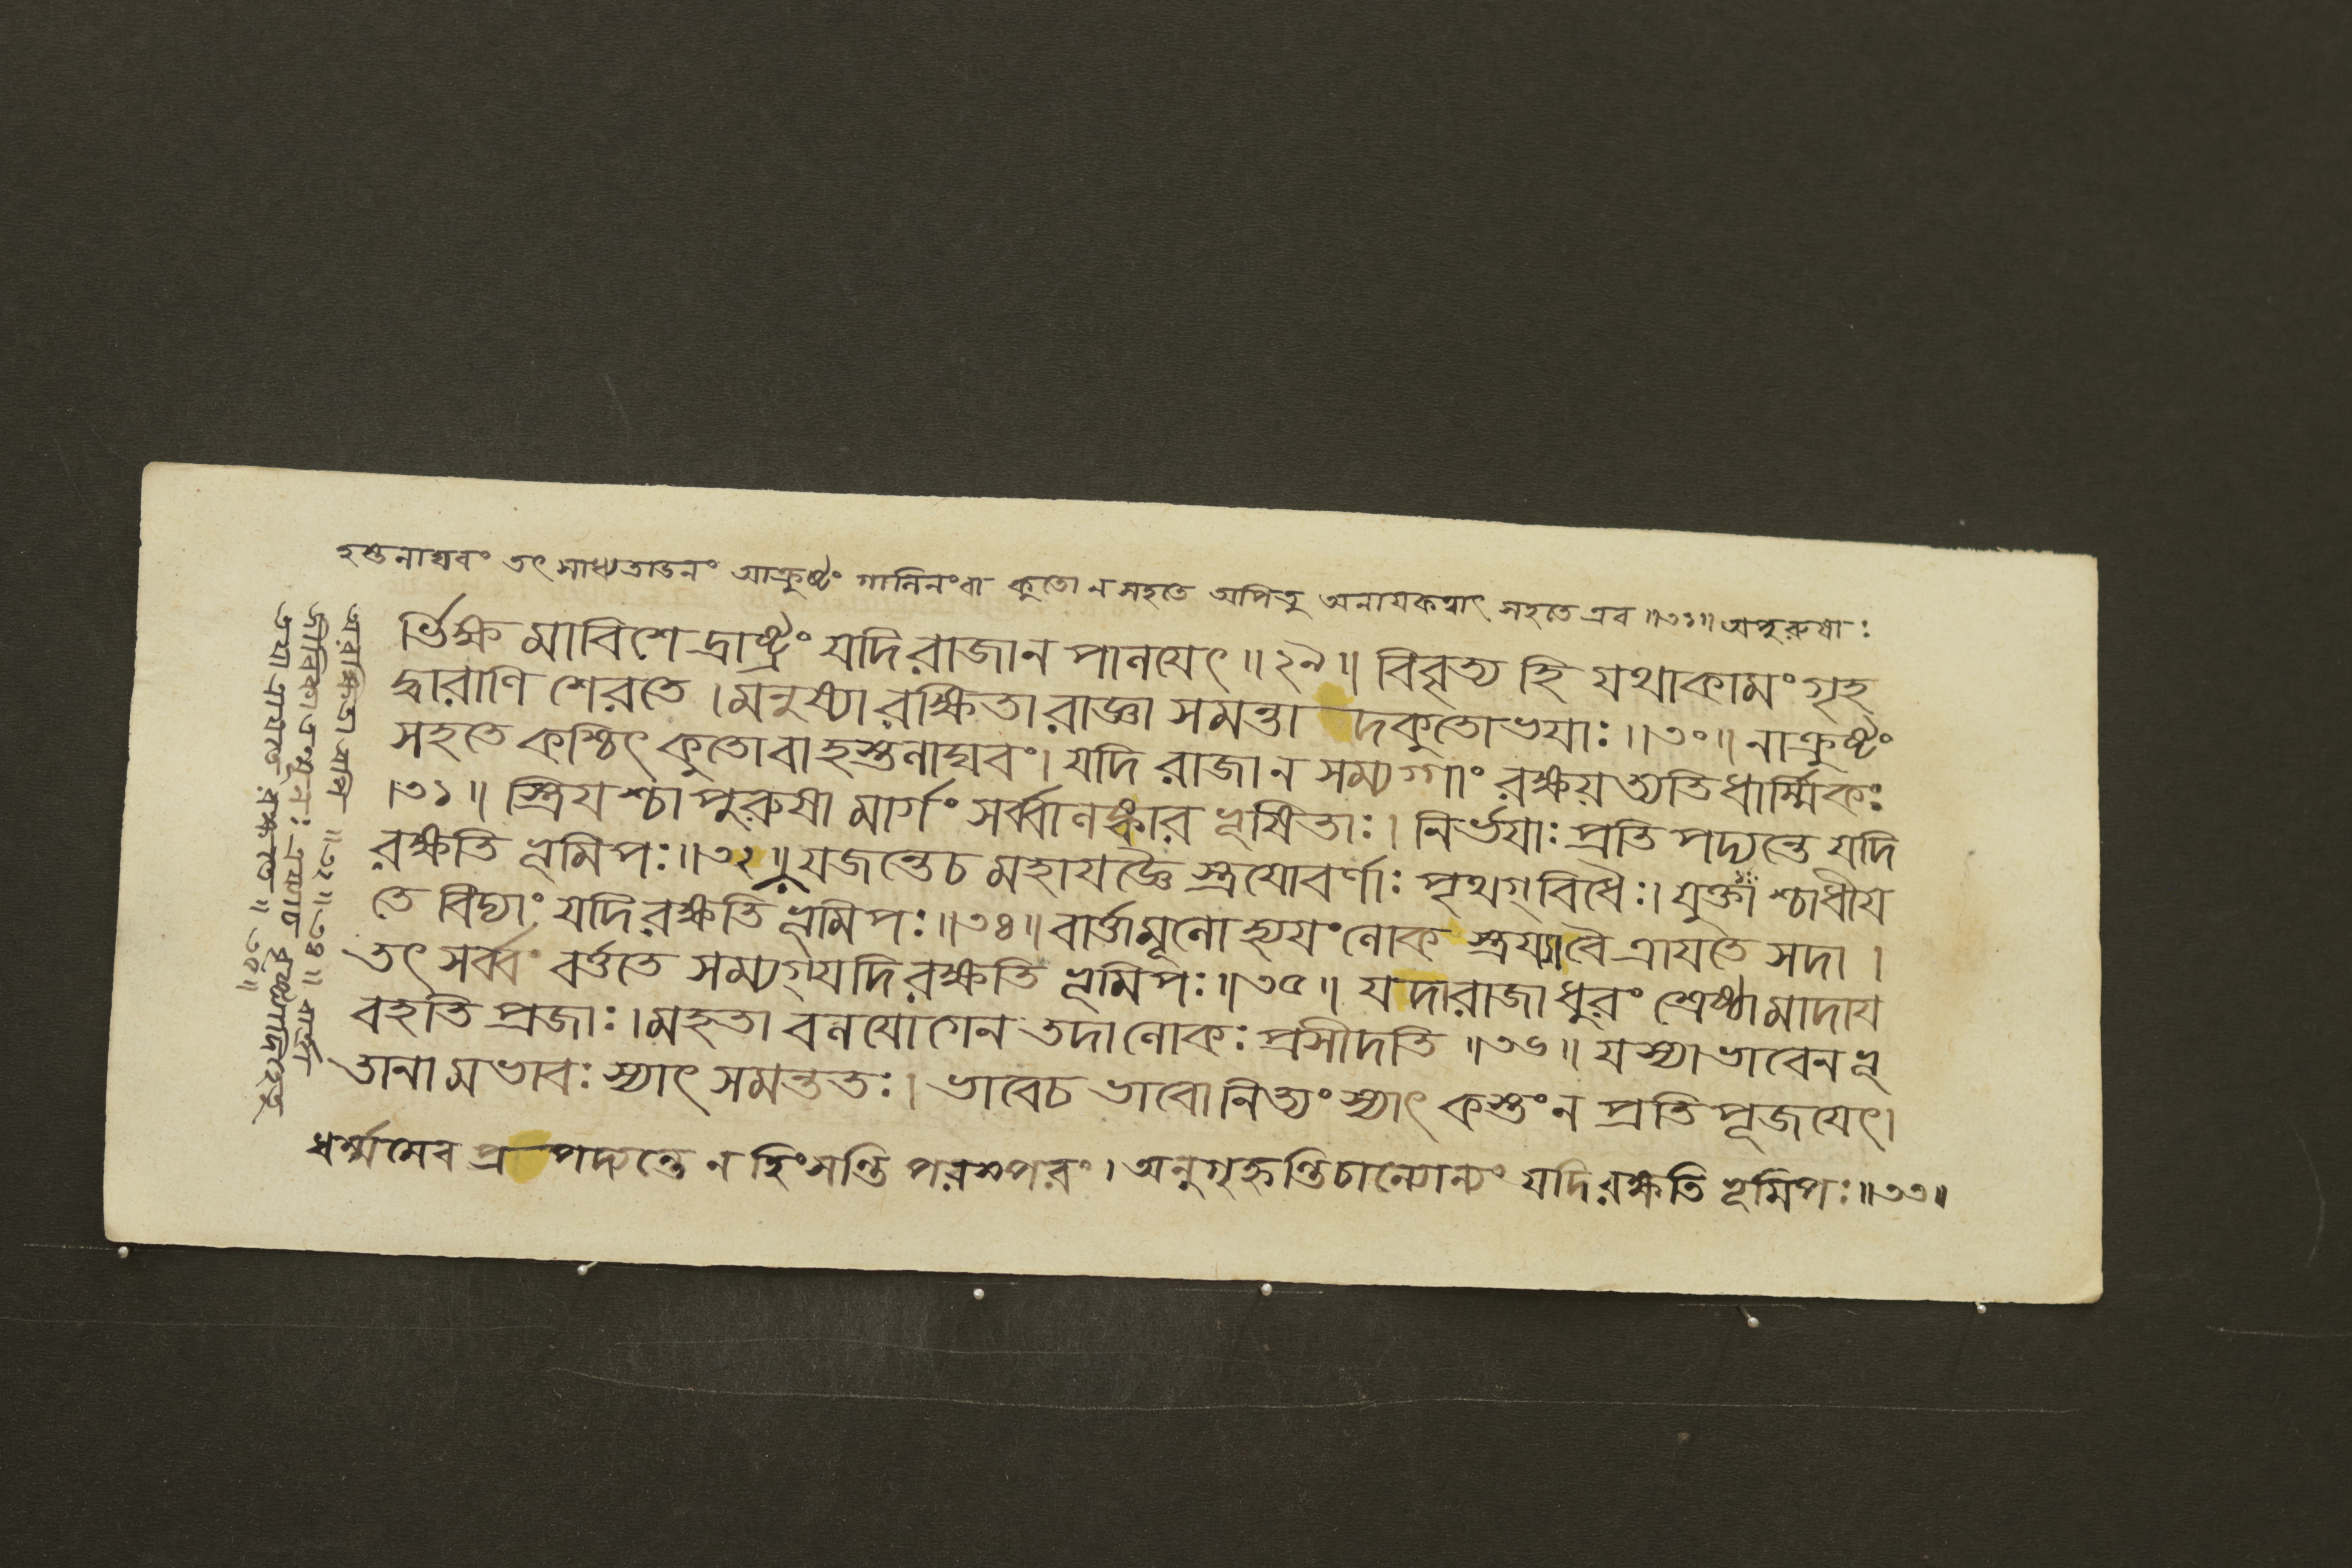 হস্তলাঘবং তৎ সাধ্যতাডনং আক্রুষ্টং গালিনংবা কুতো ন সহতে অপিতু অনাযকত্বাৎ সহতে এব ॥৩১॥ অপুরুষাঃ
র্ভিক্ষ মাবিশেদ্রাষ্ট্রং যদি রাজা ন পালযেৎ ॥ ২৯ ॥ বিবৃত্য হি যথাকামং গৃহ
দ্বারাণি শেরতে । মনুষ্যা রক্ষিতা রাজ্ঞা সমন্তা দকুতোভযাঃ ॥ ৩০ ॥ নাক্রুষ্টং
সহতে কশ্চিৎ কুতোবা হস্তলাঘবং । যদি রাজা ন সম্যগ্গাং রক্ষয়ত্যতিধার্ম্মিকঃ
।৩১ ॥ স্ত্রিযশ্চাপুরুষা মার্গং সর্ব্বালঙ্কার ভূষিতাঃ । নির্ভযাঃ প্রতিপদ্যন্তে যদি
রক্ষতি ভূমিপঃ ॥ ৩২ ॥ যজন্তেচ মহাযজ্ঞৈ স্ত্রযোবর্ণাঃ পৃথগ্বিধৈঃ । যুক্তাশ্চাধীয
তে বিদ্যাং যদি রক্ষতি ভূমিপঃ ॥ ৩৪ ॥ বার্ত্তামূলো হ্যযংলোক স্ত্রয্যাবৈ ত্রাযতে সদা ।
তৎ সর্ব্বং বর্ত্ততে সম্যগ্যদি রক্ষতি ভূমিপঃ ॥ ৩৫ ॥ যদারাজা ধুরং শ্রেষ্ঠামাদায
বহতি প্রজাঃ । মহতা বলযোগেন তদালোকঃ প্রসীদতি ॥ ৩৬ ॥ যস্যাভাবেন ভূ
তানামভাবঃ স্যাৎ সমন্ততঃ । ভাবেচ ভাবোনিত্যং স্যাৎ কস্তং ন প্রতিপূজযেৎ ।
ধর্ম্মমেব প্রপদ্যন্তে ন হিংসন্তি পরস্পরং । অনুগৃহ্ণন্তিচান্যোন্যং যদি রক্ষতি ভূমিপঃ ॥ ৩৩ ॥
অরক্ষিতা অপি ॥ ৩২ ॥ ৩৪ ॥ বার্ত্তা
জীবিকা তন্মূলঃ ত্রয্যাচ বৃষ্ট্যাদিহেতু
তযা ত্রাযতে রক্ষ্যতে ॥ ৩৫ ॥